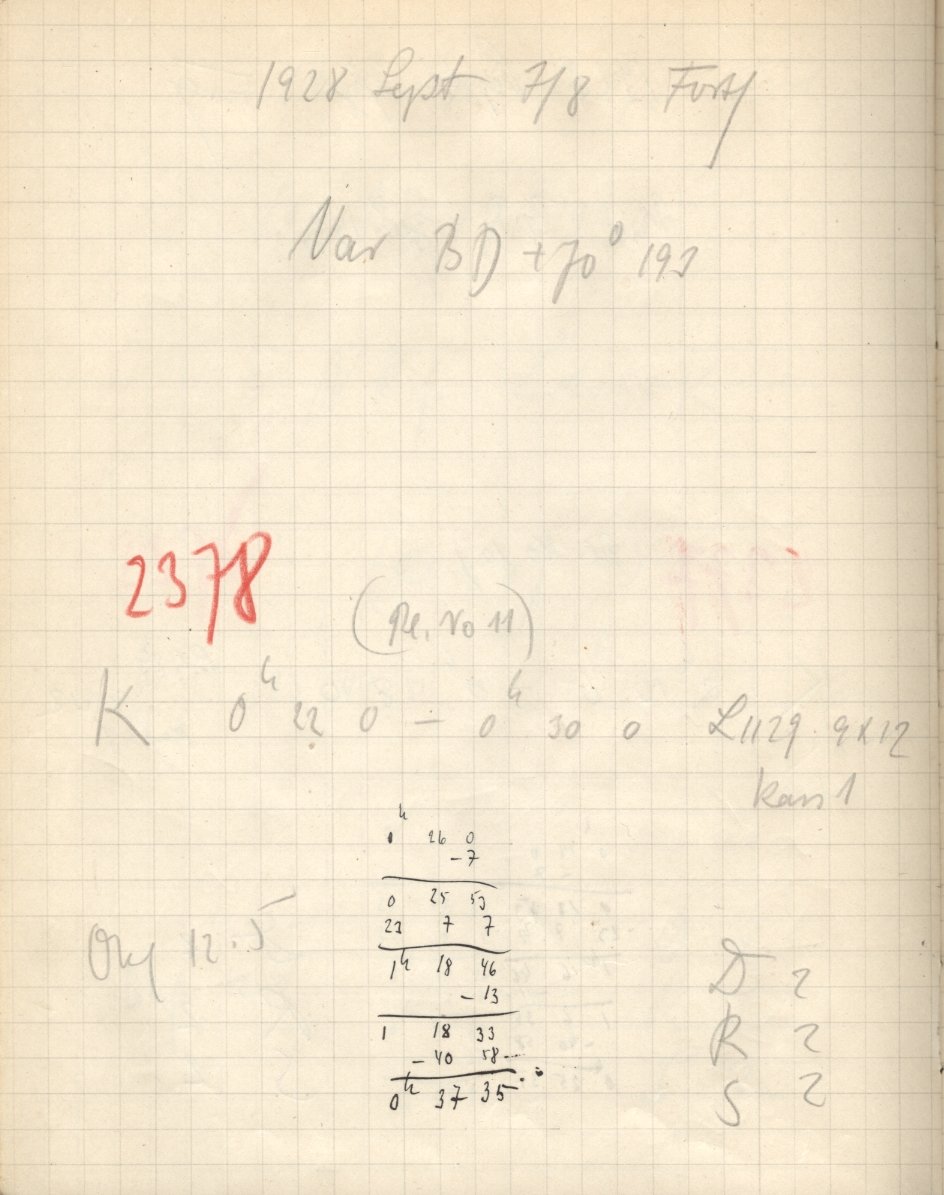 1928 Sept 7/8 Forts
Var BD +70° 193
2378
(Pl. No 11)
K 0ʰ 22 0 – 0ʰ 30 0 L1129 9x12
Kass 1
0ʰ 26 0
-7
0 25 53
23 7 7
1ʰ 18 46
- 13
1 18 33
- 40 58
0ʰ 37 35
Obj 12.5
D 2
R 2
S 2